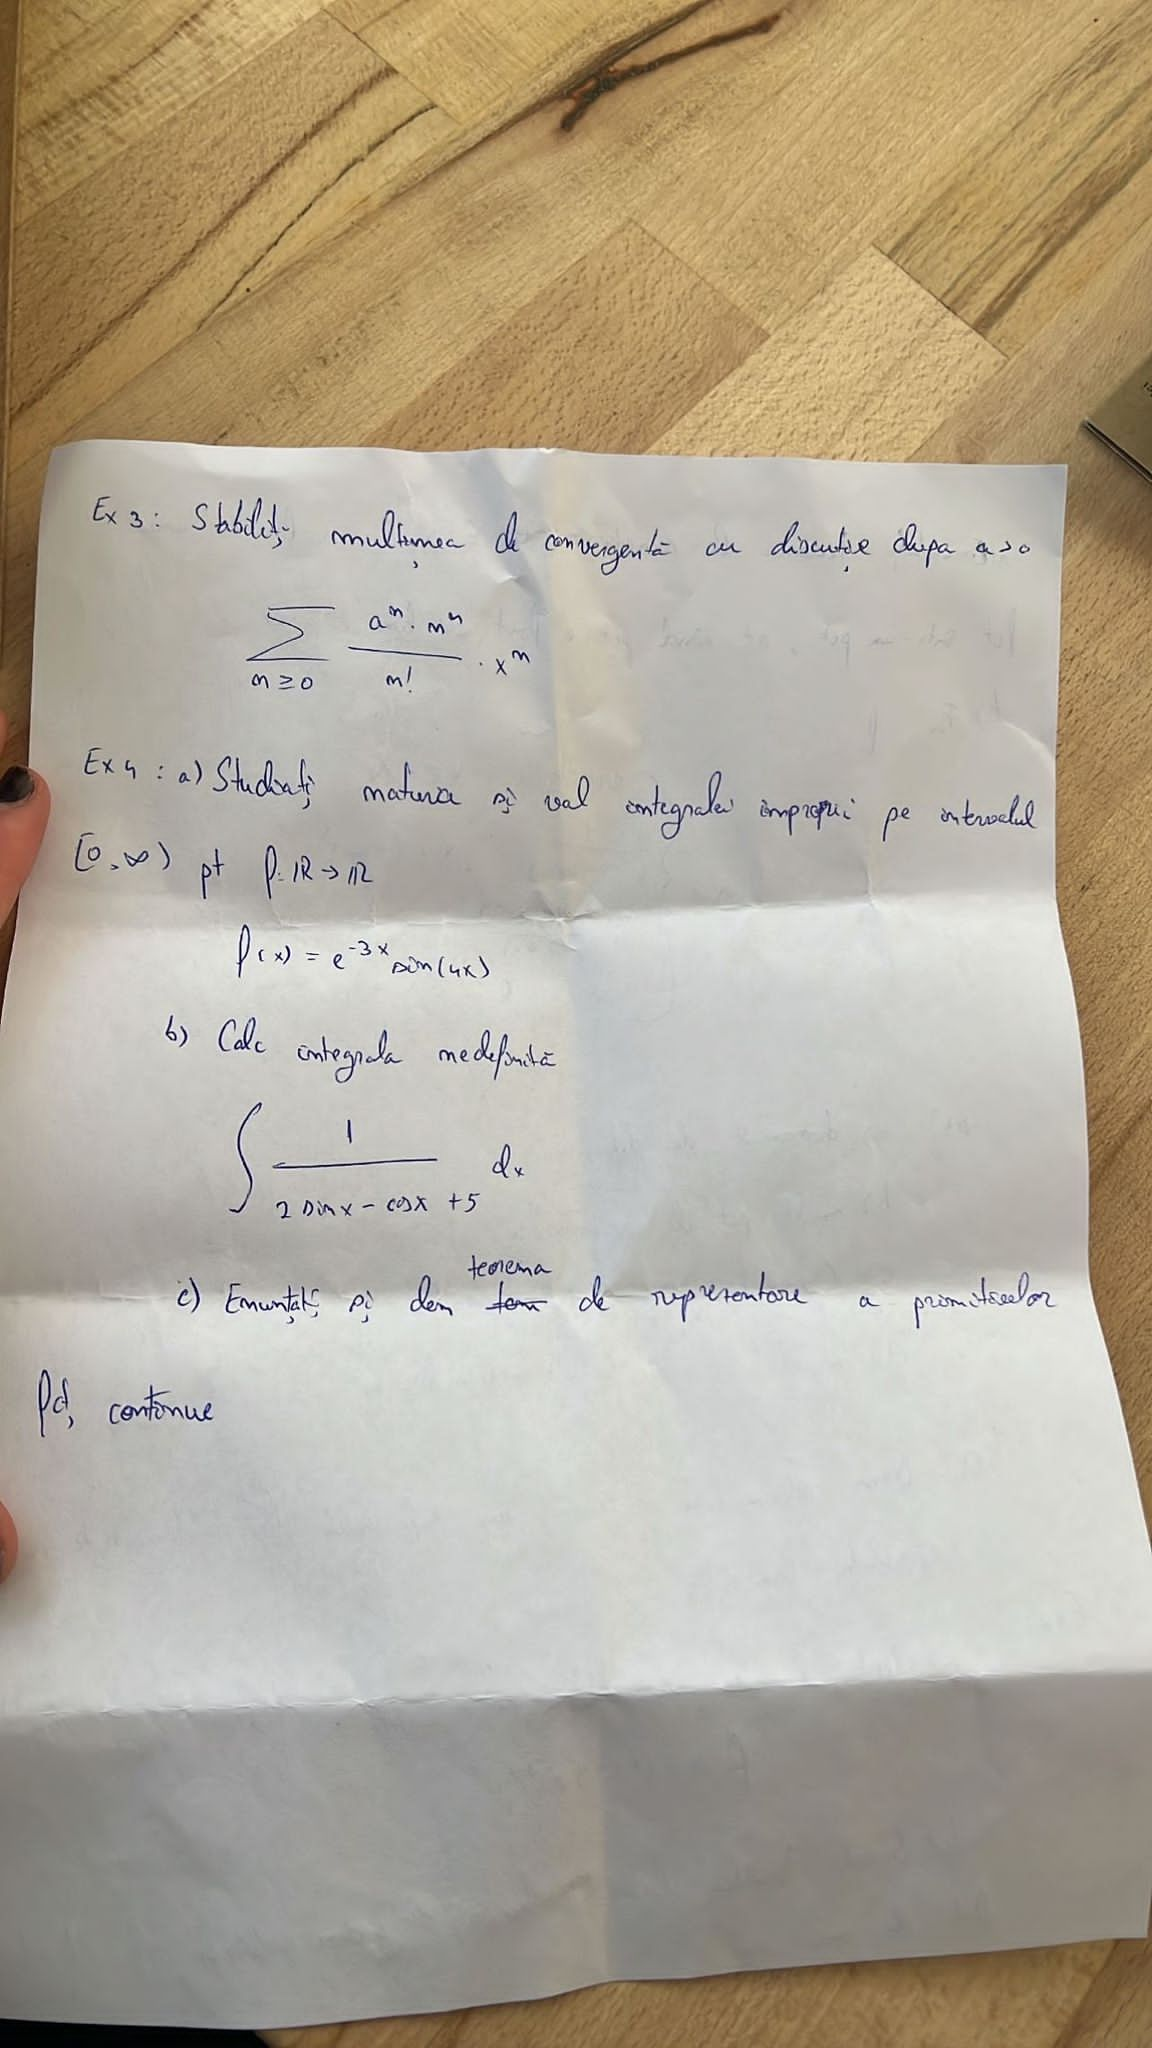 Ex 3: Stabiliți mulțimea de convergentă cu discuție dupa a>0
∑ n≥0 aⁿ · nⁿ / n! · xⁿ
Ex 4: a) Studiați natura și val integralei improprii pe intervalul
[0, ∞) pt f: ℝ → ℝ
f(x) = e⁻³ˣ sin(4x)
b) Calc integrala nedefinită
∫ 1 / (2 sinx - cosx + 5) dx
c) Enunțați și dem teorema de reprezentare a primitivelor
fcț continue